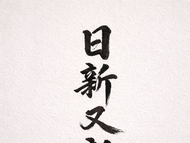 日新又